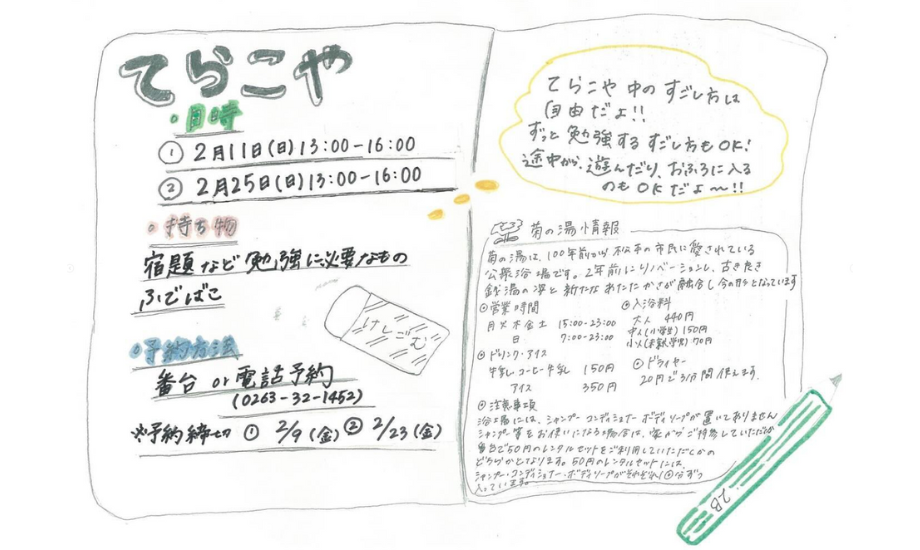 てらこや
・日時
① 2月11日(日)13:00-16:00
② 2月25日(日)13:00-16:00
・持ち物
宿題など勉強に必要なもの
ふでばこ
・予約方法
番台 or 電話予約
(0263-32-1452)
※予約締切 ① 2/9(金) ② 2/23(金)
けしごむ
てらこや中のすごし方は
自由だよ!!
ずっと勉強するすごし方もOK!
途中から、遊んだり、おふろに入る
のもOKだよ〜!!
菊の湯情報
菊の湯は、100年前から松本の市民に愛されている
公衆浴場です。2年前にリノベーションし、古き良き
銭湯の
と新たなあたたかさが融合し今の形となっています
⊙営業時間
月火木金土 15:00-23:00
日 7:00-23:00
⊙入浴料
大人 440円
中人(小学生)150円
小人(未就学児)70円
⊙ドリンク・アイス
牛乳・コーヒー牛乳 150円
アイス 350円
⊙ドライヤー
20円で3分間使えます。
⊙注意事項
浴場には、シャンプー コンディショナー ボディソープが置いてありません
シャンプー等をお使いになる場合は、家からご持参していただくか
番台で50円のレンタルセットをご利用していただくかの
どちらかとなります。50円のレンタルセットには、
シャンプー・コンディショナー・ボディソープがそれぞれ1回分ずつ
入っています。
2B